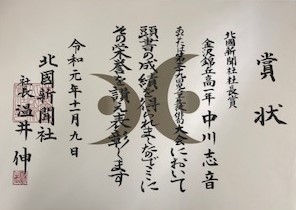 賞状
北國新聞社社長賞
金沢錦丘高一年 中川志音
あなたは第三十九回 大会において
頭書の成績を得られましたのでここに
その栄誉を讃え表彰します
令和元年十一月九日
北國新聞社
社長 温井伸